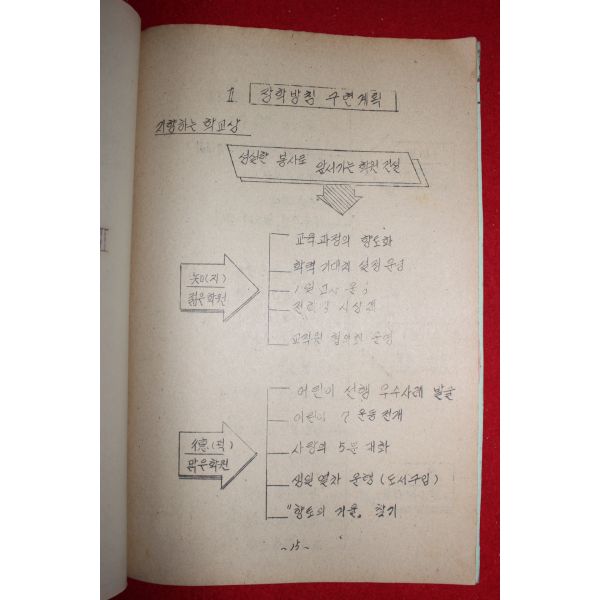 Ⅱ. 장학방침 구현계획
지향하는 학교상
성실한 봉사로 앞서가는 학원 건설
知(지)
젊은학원
교육과정의 향토화
학력 기대치 설정 운영
1일 교사 운영
교직원 협의회 운영
德(덕)
맑은학원
어린이 선행 우수사례 발굴
어린이 7 운동 전개
사랑의 5분 대화
생일 열차 운행 (도서구입)
"향토의 거울" 찾기
~15~